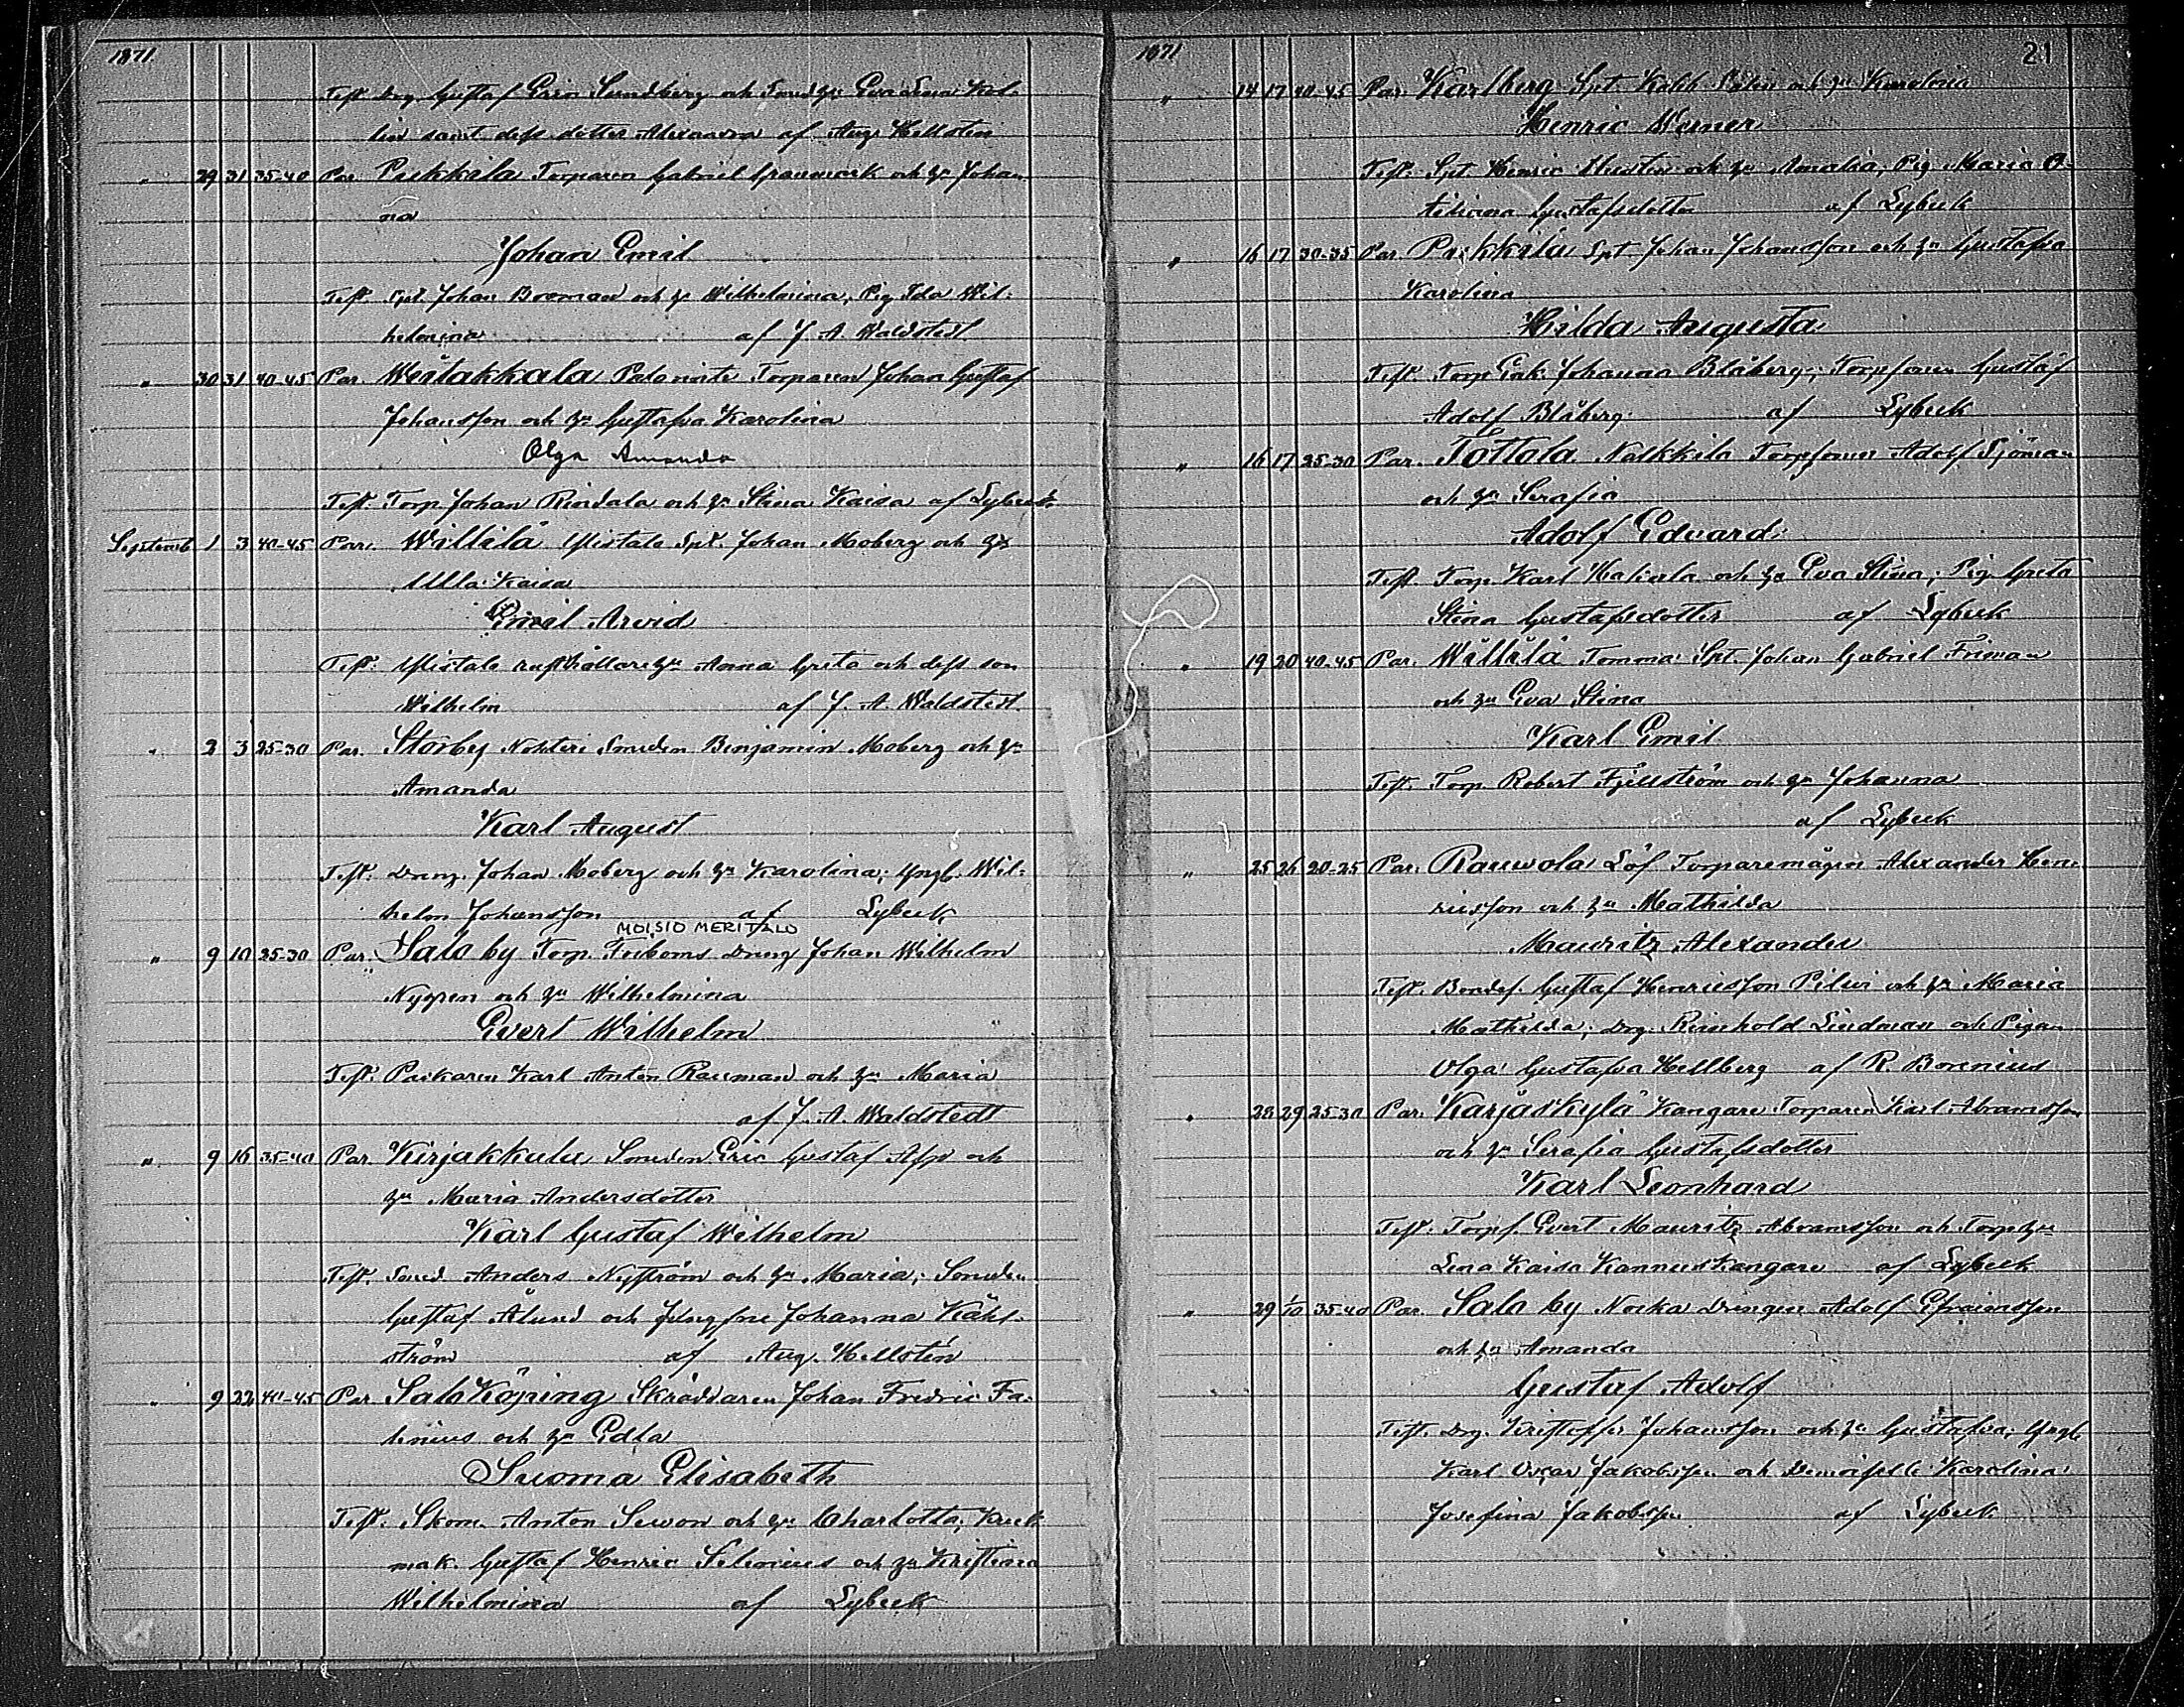 1871
Test. Drg. Gustaf Eric Sundberg och Smedhu Eva Lena Kol-
lin samt dess dotter Alexandra af Aug. Hellsten
" 29 31 35-40 Par. Pukkila Torparen Gabriel Grannvik och hu Johan
na
Johan Emil
Test. Spt. Johan Broman och hu Wilhelmina, Pig. Ida Wil-
helmina af J. A. Waldstedt.
" 30 31 40-45 Par. Weitakkala Palomäte Torparen Johan Gustaf
Johansson och hu Gustafva Karolina
Olga Amanda
Test. Torp. Johan Rindala och hu Stina Kaisa af Lybeck.
Septemb 1 3 40-45 Par. Willilä Ylistalo Spt. Johan Moberg och hu
Ulla Kaisa
Emil Arvid
Test. Ylistalo rusthållarehu Anna Greta och dess son
Wilhelm af J. A. Waldstedt.
" 2 3 25-30 Par. Storby Nohteri Smeden Benjamin Moberg och hu
Amanda
Karl August
Test. Dreng. Johan Moberg och hu Karolina; Yngl. Wil-
helm Johansson af Lybeck
MOISIO MERITALO
" 9 10 25-30 Par. Salo by Torp. Friboms Dreng Johan Wilhelm
Nygren och hu Wilhelmina
Evert Wilhelm
Test. Packaren Karl Anton Rauman och hu Maria
af J. A. Waldstedt
" 9 16 35-40 Par. Kirjakkala Smeden Eric Gustaf Asp och
hu Maria Andersdotter
Karl Gustaf Wilhelm
Test. Smed. Anders Nyström och hu Maria; Smeden
Gustaf Ålund och Jungfru Johanna Kåhl-
ström af Aug. Hellstén
" 9 22 40-45 Par. Salo Köping Skräddaren Johan Fredric Fa-
lenius och hu Edla
Suoma Elisabeth
Test. Skom. Anton Sewon och hu Charlotta; Kruk
mak. Gustaf Henric Selenius och hu Kristina
Wilhelmina af Lybeck
1871 21
" 14 17 40-45 Par. Karlberg Spt. Kaleb Salin och hu Karolina
Henric Werner
Test. Spt. Henric Husten och hu Amalia, Pig. Maria O-
tiliana Gustafsdotter af Lybeck
" 16 17 30-35 Par. Pukkila Spt. Johan Johansson och hu Gustafva
Karolina
Hilda Augusta
Test. Torp. Enk. Johanna Blåberg; Torpsonen Gustaf
Adolf Blåberg af Lybeck
" 16 17 25-30 Par. Tottola Nalkkila Torpsonen Adolf Sjöman
och hu Serafia
Adolf Edvard
Test. Torp. Karl Hakala och hu Eva Stina; Pig. Greta
Stina Gustafsdotter af Lybeck
" 19 20 40-45 Par. Willilä Tomma Spt. Johan Gabriel Friman
och hu Eva Stina
Karl Emil
Test. Torp. Robert Fjellström och hu Johanna
af Lybeck
" 25 26 20-25 Par. Rauwola Löf Torparemågen Alexander Hen-
ricsson och hu Mathilda
Mauritz Alexander
Test. Bondes. Gustaf Henricsson Pilwi och hu Maria
Mathilda; Drg. Reinhold Lindman och Pigan
Olga Gustafva Hellberg af R. Borenius
" 28 29 25-30 Par. Karjaskylä Kangare Torparen Karl Abramsson
och hu Serafia Gustafsdotter
Karl Leonhard
Test. Torps. Evert Mauritz Abramsson och Torp.hu
Lena Kaisa Kannus Kangare af Lybeck
" 29 1/10 35-40 Par. Salo by Nocka Drengen Adolf Efraimsson
och hu Amanda
Gustaf Adolf
Test. Drg. Kristoffer Johansson och hu Gustafva; Yngl.
Karl Oscar Jakobsson och Demoiselle Karolina
Josefina Jakobsson af Lybeck